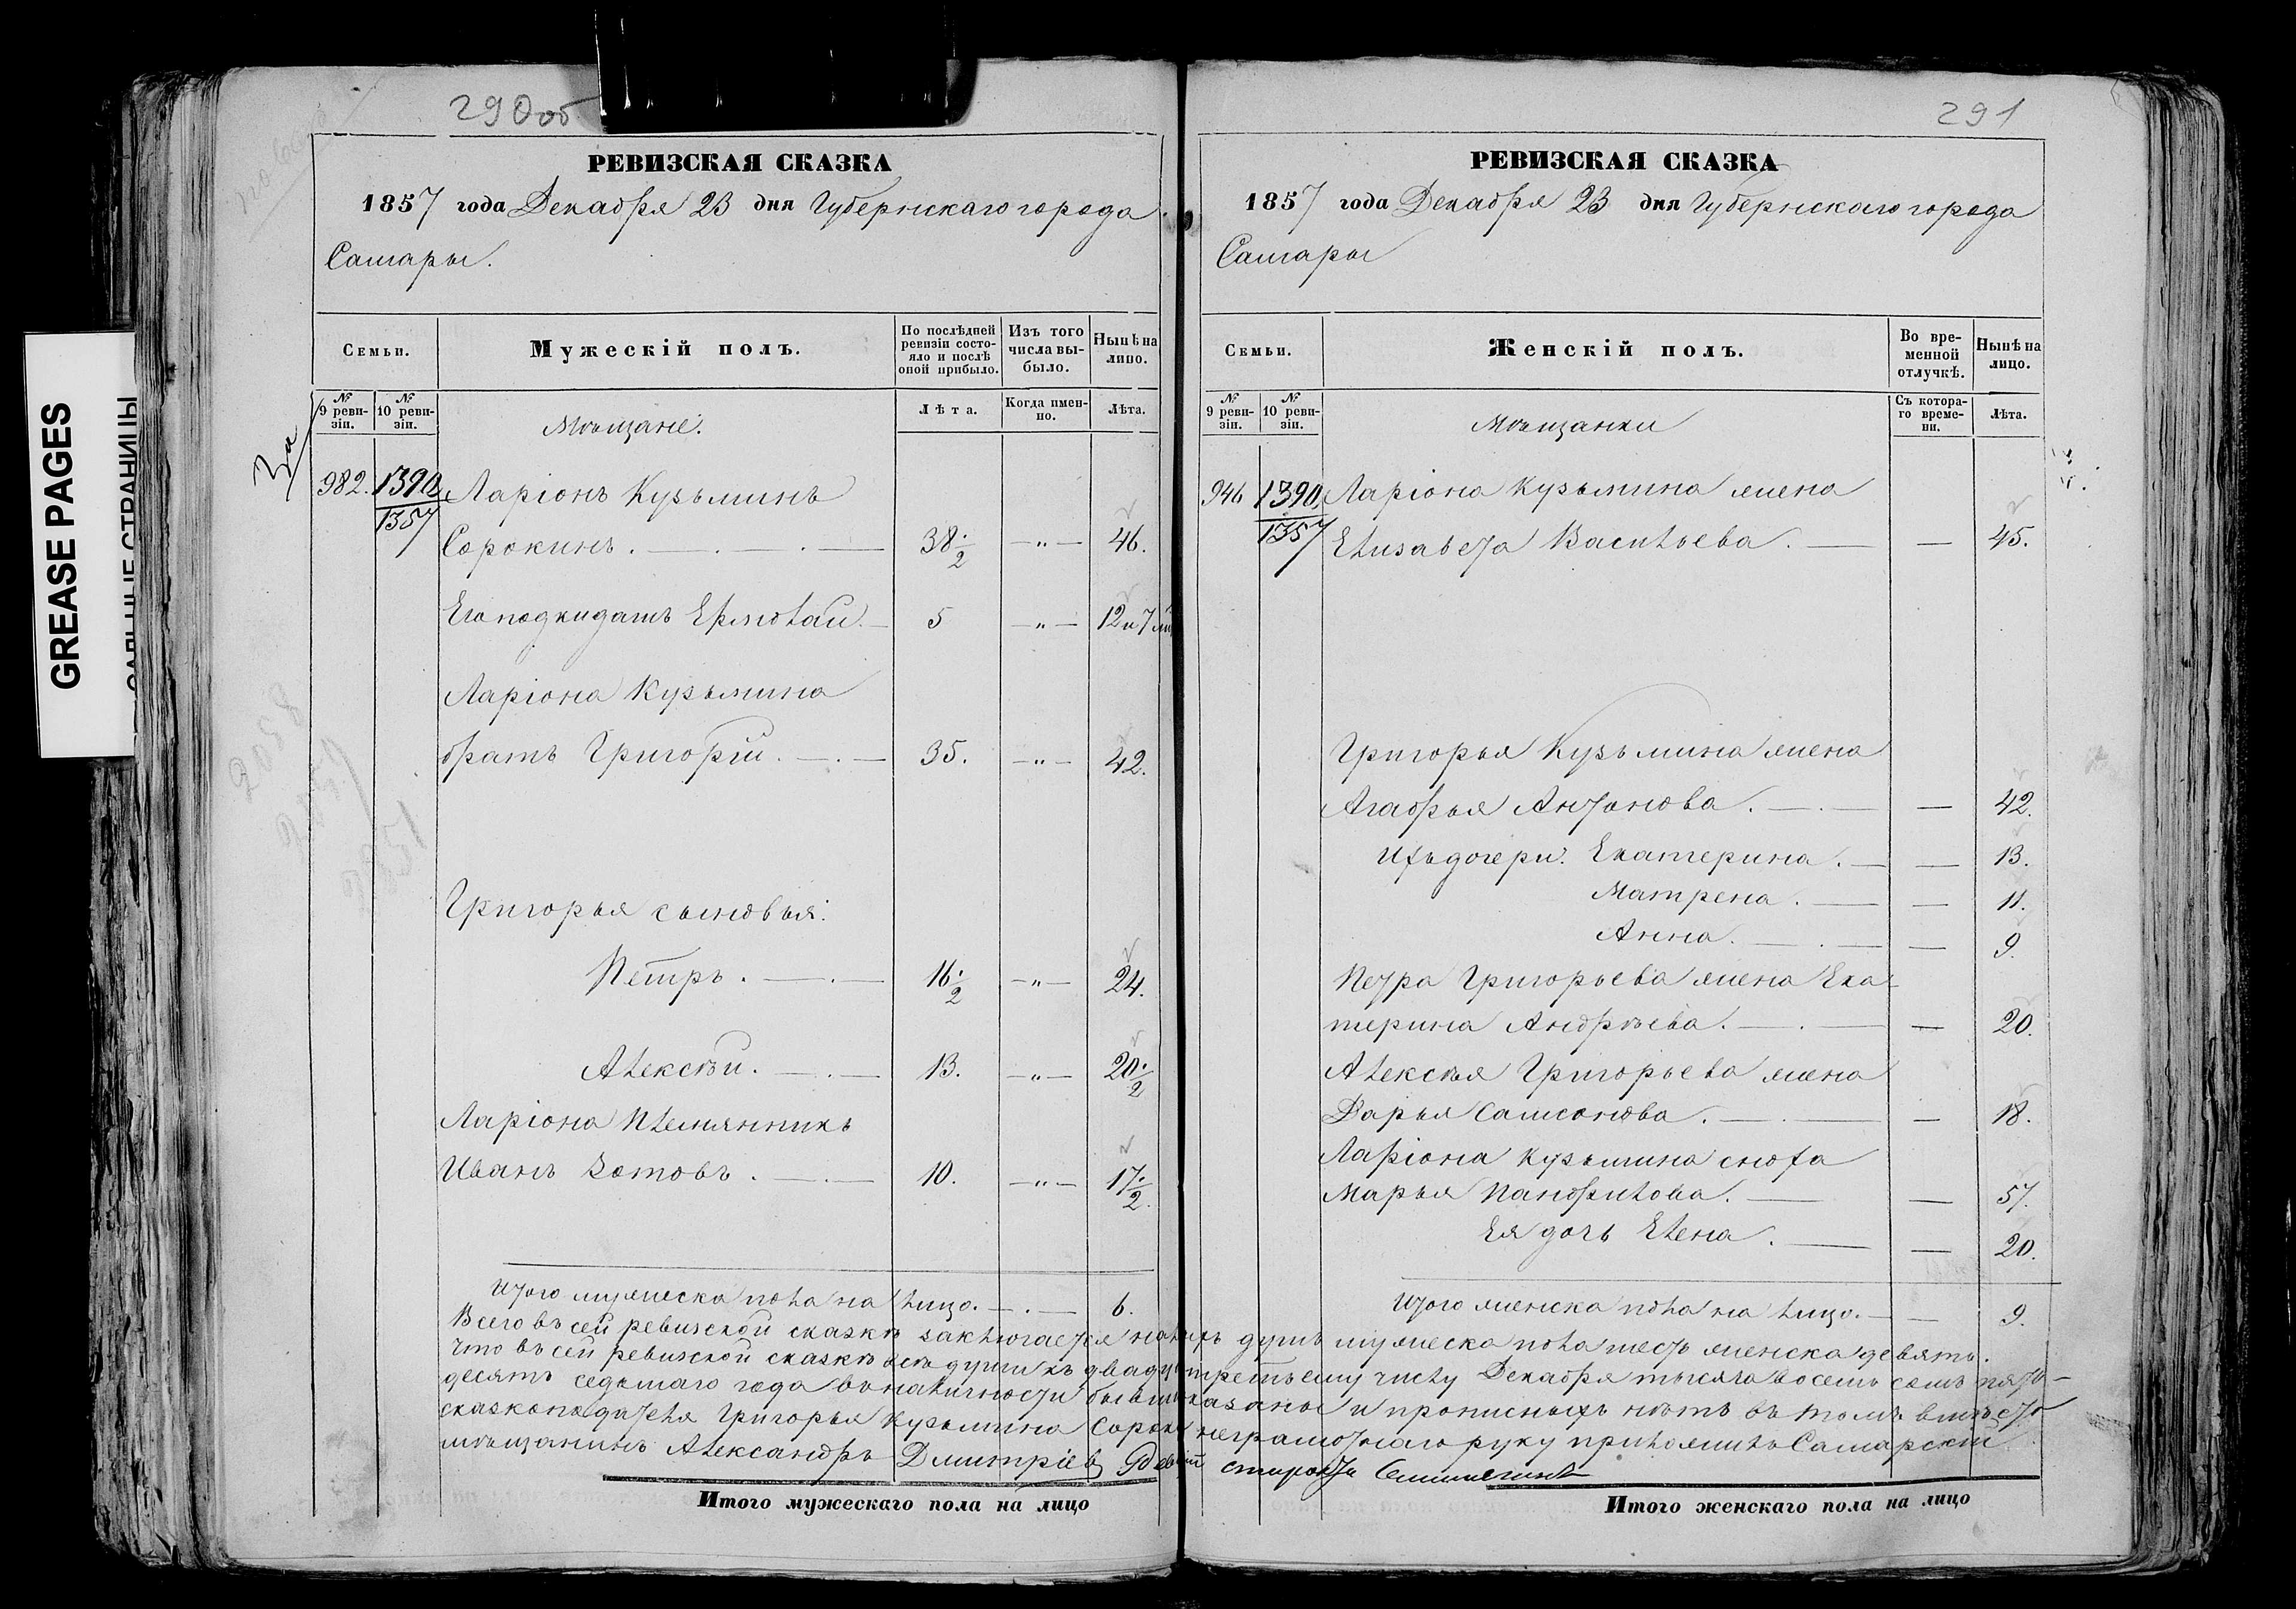 GREASE PAGES
290об
РЕВИЗСКАЯ СКАЗКА
1857 года Декабря 23 дня Губернскаго города
Самары.
Семьи.
Мужескій полъ.
По послѣдней ревизіи состояло и послѣ оной прибыло.
Изъ того числа выбыло.
Нынѣ на лицо.
№ 9 ревизіи.
№ 10 ревизіи.
Лѣта.
Когда именно.
Лѣта.
Мѣщане.
За
982. 1390 Ларіонъ Кузьминъ
1357
Сорокинъ. 38 ½ —"— 46.
Его подкидашъ Ермолай. 5 —"— 12 и 7
Ларіона Кузьмина
братъ Григорій. 35. —"— 42.
Григорья сыновья:
Петръ. 16 ½ —"— 24.
Алексѣй. 13. —"— 20 ½
Ларіона племянникъ
Иванъ Зотовъ. 10. —"— 17 ½
Итого мужеска пола на лицо. 6.
291
РЕВИЗСКАЯ СКАЗКА
1857 года Декабря 23 дня Губернскаго города
Самары
Семьи.
Женскій полъ.
Во временной отлучкѣ.
Нынѣ на лицо.
№ 9 ревизіи.
№ 10 ревизіи.
Съ котораго времени.
Лѣта.
Мѣщанки
946 1390 Ларіона Кузьмина жена
1357
Елизавета Васильева. — 45.
Григорья Кузьмина жена
Агафья Антонова. — 42.
Ихъ дочери: Екатерина. — 13.
Матрена. — 11.
Анна. — 9.
Петра Григорьева жена Ека-
терина Андрѣева. — 20.
Алексѣя Григорьева жена
Дарья Самсонова. — 18.
Ларіона Кузьмина сноха
Марья Панфилова. — 57.
Ея дочь Елена. — 20.
Итого женска пола на лицо. — 9.
Всего въ сей ревизской сказкѣ заключается налицъ душъ мужеска пола шесть женска девять.
Что въ сей ревизской сказкѣ всѣ души къ двадцать третьему числу Декабря тысяча восемь сотъ пять-
десятъ седьмаго года въ наличности бывшія показаны и прописныхъ нѣтъ въ томъ вмѣсто
сказкоподателя Григорья Кузьмина Сорокина неграмотнаго руку приложилъ Самарскій
мѣщанинъ Александръ Дмитріевъ
староста
Итого мужескаго пола на лицо
Итого женскаго пола на лицо